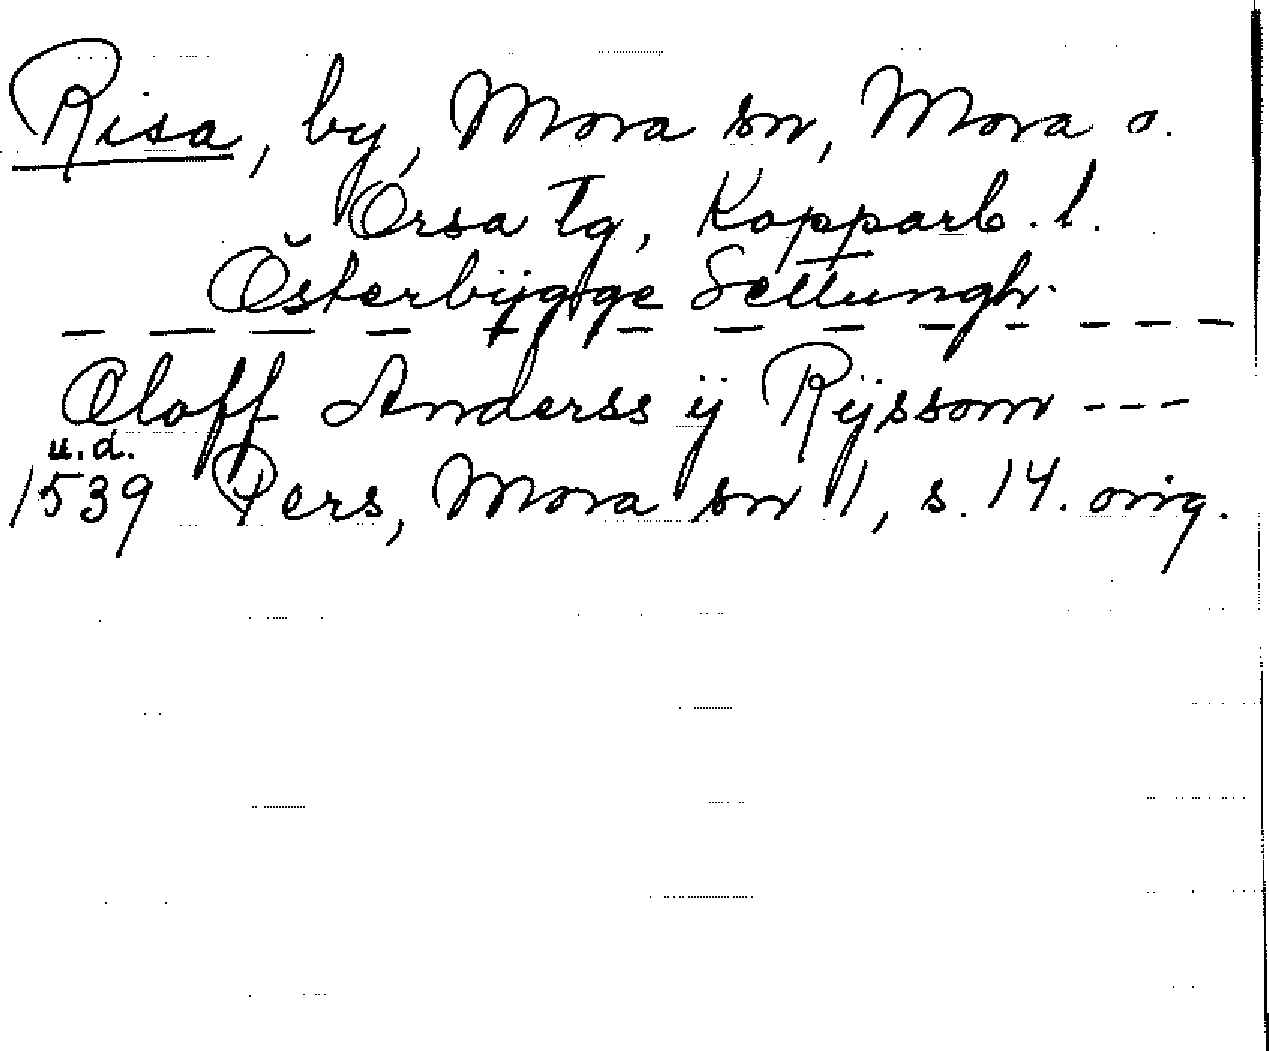 Risa, by, Mora sn, Mora o.
Orsa tg, Kopparb. l.
Österbÿgge Settungh.
— — — — — — — — — — — — —
Oloff Anderss ÿ Rÿssom ---
u.d.
1539 Pers, Mora sn 1, s. 14. orig.